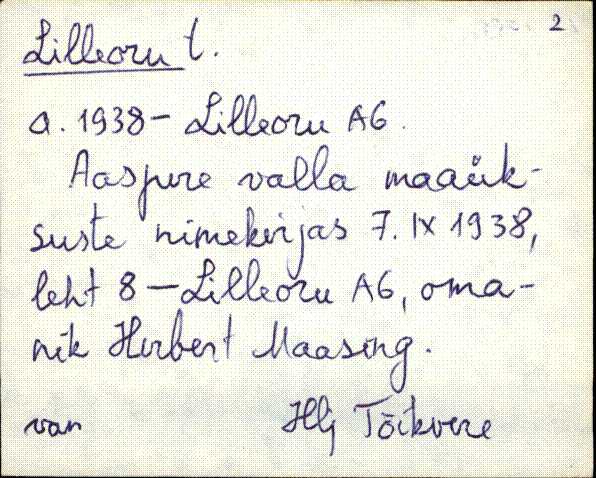 2
Lilleoru t.
a. 1938 - Lilleoru A6.
Aaspere valla maaük-
suste nimekirjas 7. IX 1938,
leht 8 - Lilleoru A6, oma-
nik Herbert Maasing.
van Hlj Tõikvere